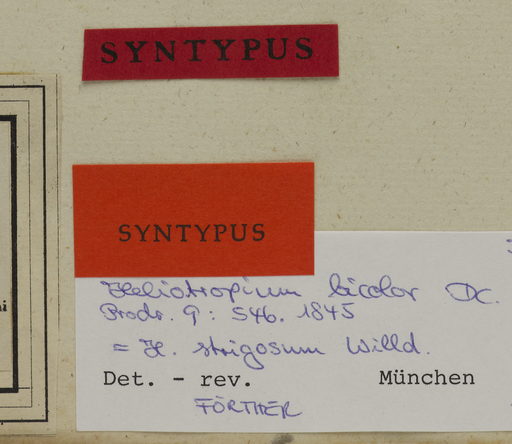 SYNTYPUS
SYNTYPUS
Heliotropium bicolor DC.
Prodr. 9: 546. 1845
= H. strigosum Willd.
Det. - rev. München
FÖRTHER